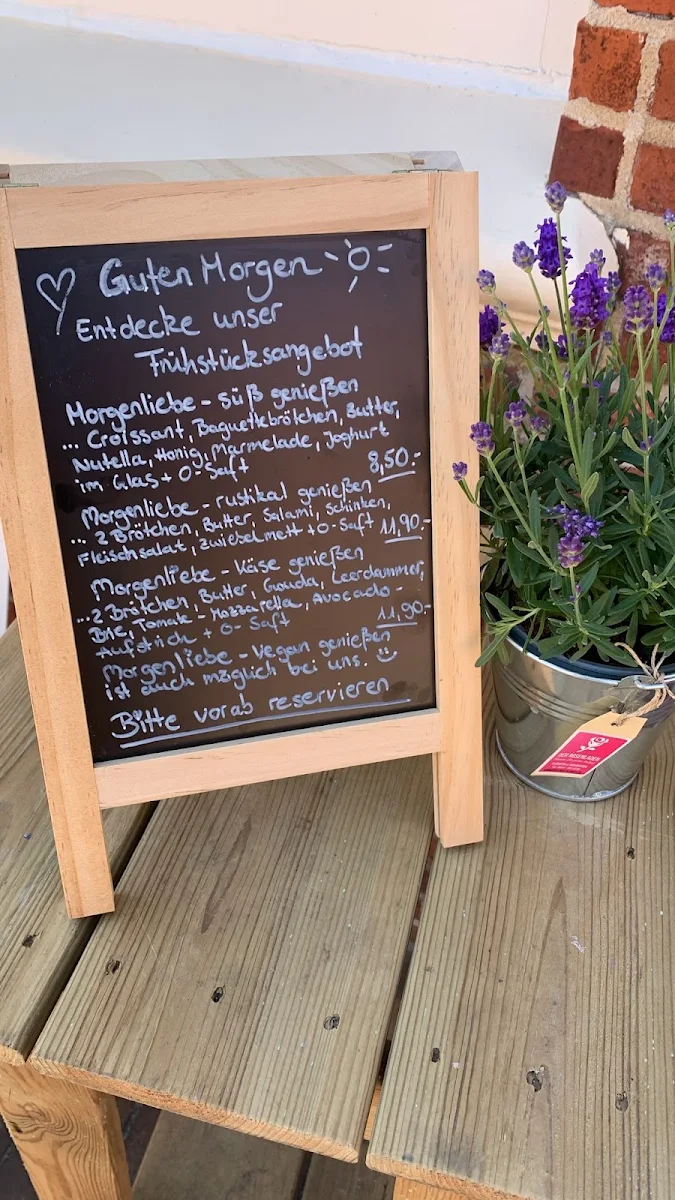 Guten Morgen
Entdecke unser
Frühstücksangebot
Morgenliebe - süß genießen
... Croissant, Baguettebrötchen, Butter,
Nutella, Honig, Marmelade, Joghurt
im Glas + O-Saft 8,50.-
Morgenliebe - rustikal genießen
... 2 Brötchen, Butter, Salami, Schinken,
Fleischsalat, Zwiebelmett + O-Saft 11,90.-
Morgenliebe - Käse genießen
...2 Brötchen, Butter, Gouda, Leerdammer,
Brie, Tomate - Mozzarella, Avocado -
Aufstrich + O-Saft 11,90.-
Morgenliebe - vegan genießen
ist auch möglich bei uns. :)
Bitte vorab reservieren
DER ROSENLADEN